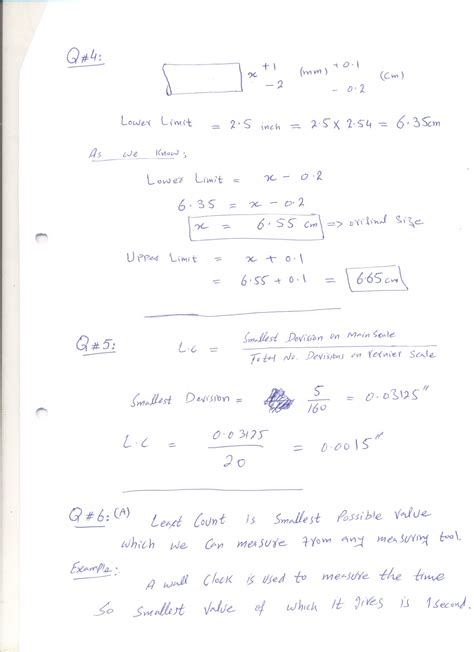 Q#4:
x +1 -2 (mm) +0.1 -0.2 (cm)
Lower Limit = 2.5 inch = 2.5 X 2.54 = 6.35cm
As we know;
Lower Limit = x - 0.2
6.35 = x - 0.2
x = 6.55 cm => original size
Upper Limit = x + 0.1
= 6.55 + 0.1 = 6.65cm
Q#5: L.C = Smallest Devision on Main Scale / Total No. Devisions on Vernier Scale
Smallest Devision = 5/160 = 0.03125"
L.C = 0.03125/20 = 0.0015"
Q#6: (A) Least Count is Smallest Possible value
which we can measure from any measuring tool.
Example:
A wall clock is used to measure the time
So smallest value of which it gives is 1 second.